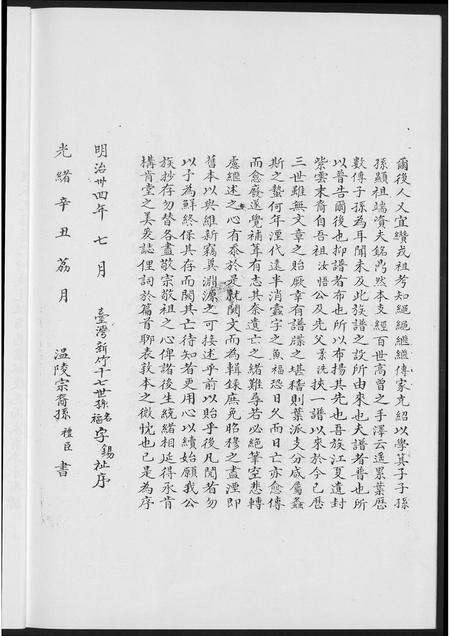 爾後人又宜纘戎祖考知繩繩繼繼傳家光紹以學箕子子孫
孫顯祖端資夫銘爲然本支經百世高曾之手澤云遙累葉歷
數傳子孫為耳聞未及此族譜之設所由來也夫譜者普也所
以普告爾後也抑譜者布也所以布揚其先也吾族江夏遺封
紫雲末裔自吾祖汝悟公及先父景洗挾一譜以來於今已歷
三世雖無文章之貽厥幸有譜牒之堪稽則葉派支分感屬螽
斯之蟄何年湮代遠半消蠹字之魚穏恐日久而日亡亦愈傳
而愈廢遂覺補葺有志其奈遺亡之緒難尋若必絕筆空悲轉
處繼述之心有忝於是就闕文而為輯錄庶免昭穆之盡湮即
舊本以與維新竊冀淵源之可接述乎前以貽乎後凡閱者勿
以予為鮮終保其存而闕其亡待知者更用心以續始願我公
族抄存勿替各盡敬宗敬祖之心俾諸後生統緒相延得承肯
構肯堂之美爰誌俚詞於篇首聊表敦本之微忱也已是為序
明治卅四年七月 臺灣新竹十七世孫名福字錫祉序
光緒辛丑荔月 溫陵宗裔孫禮臣書